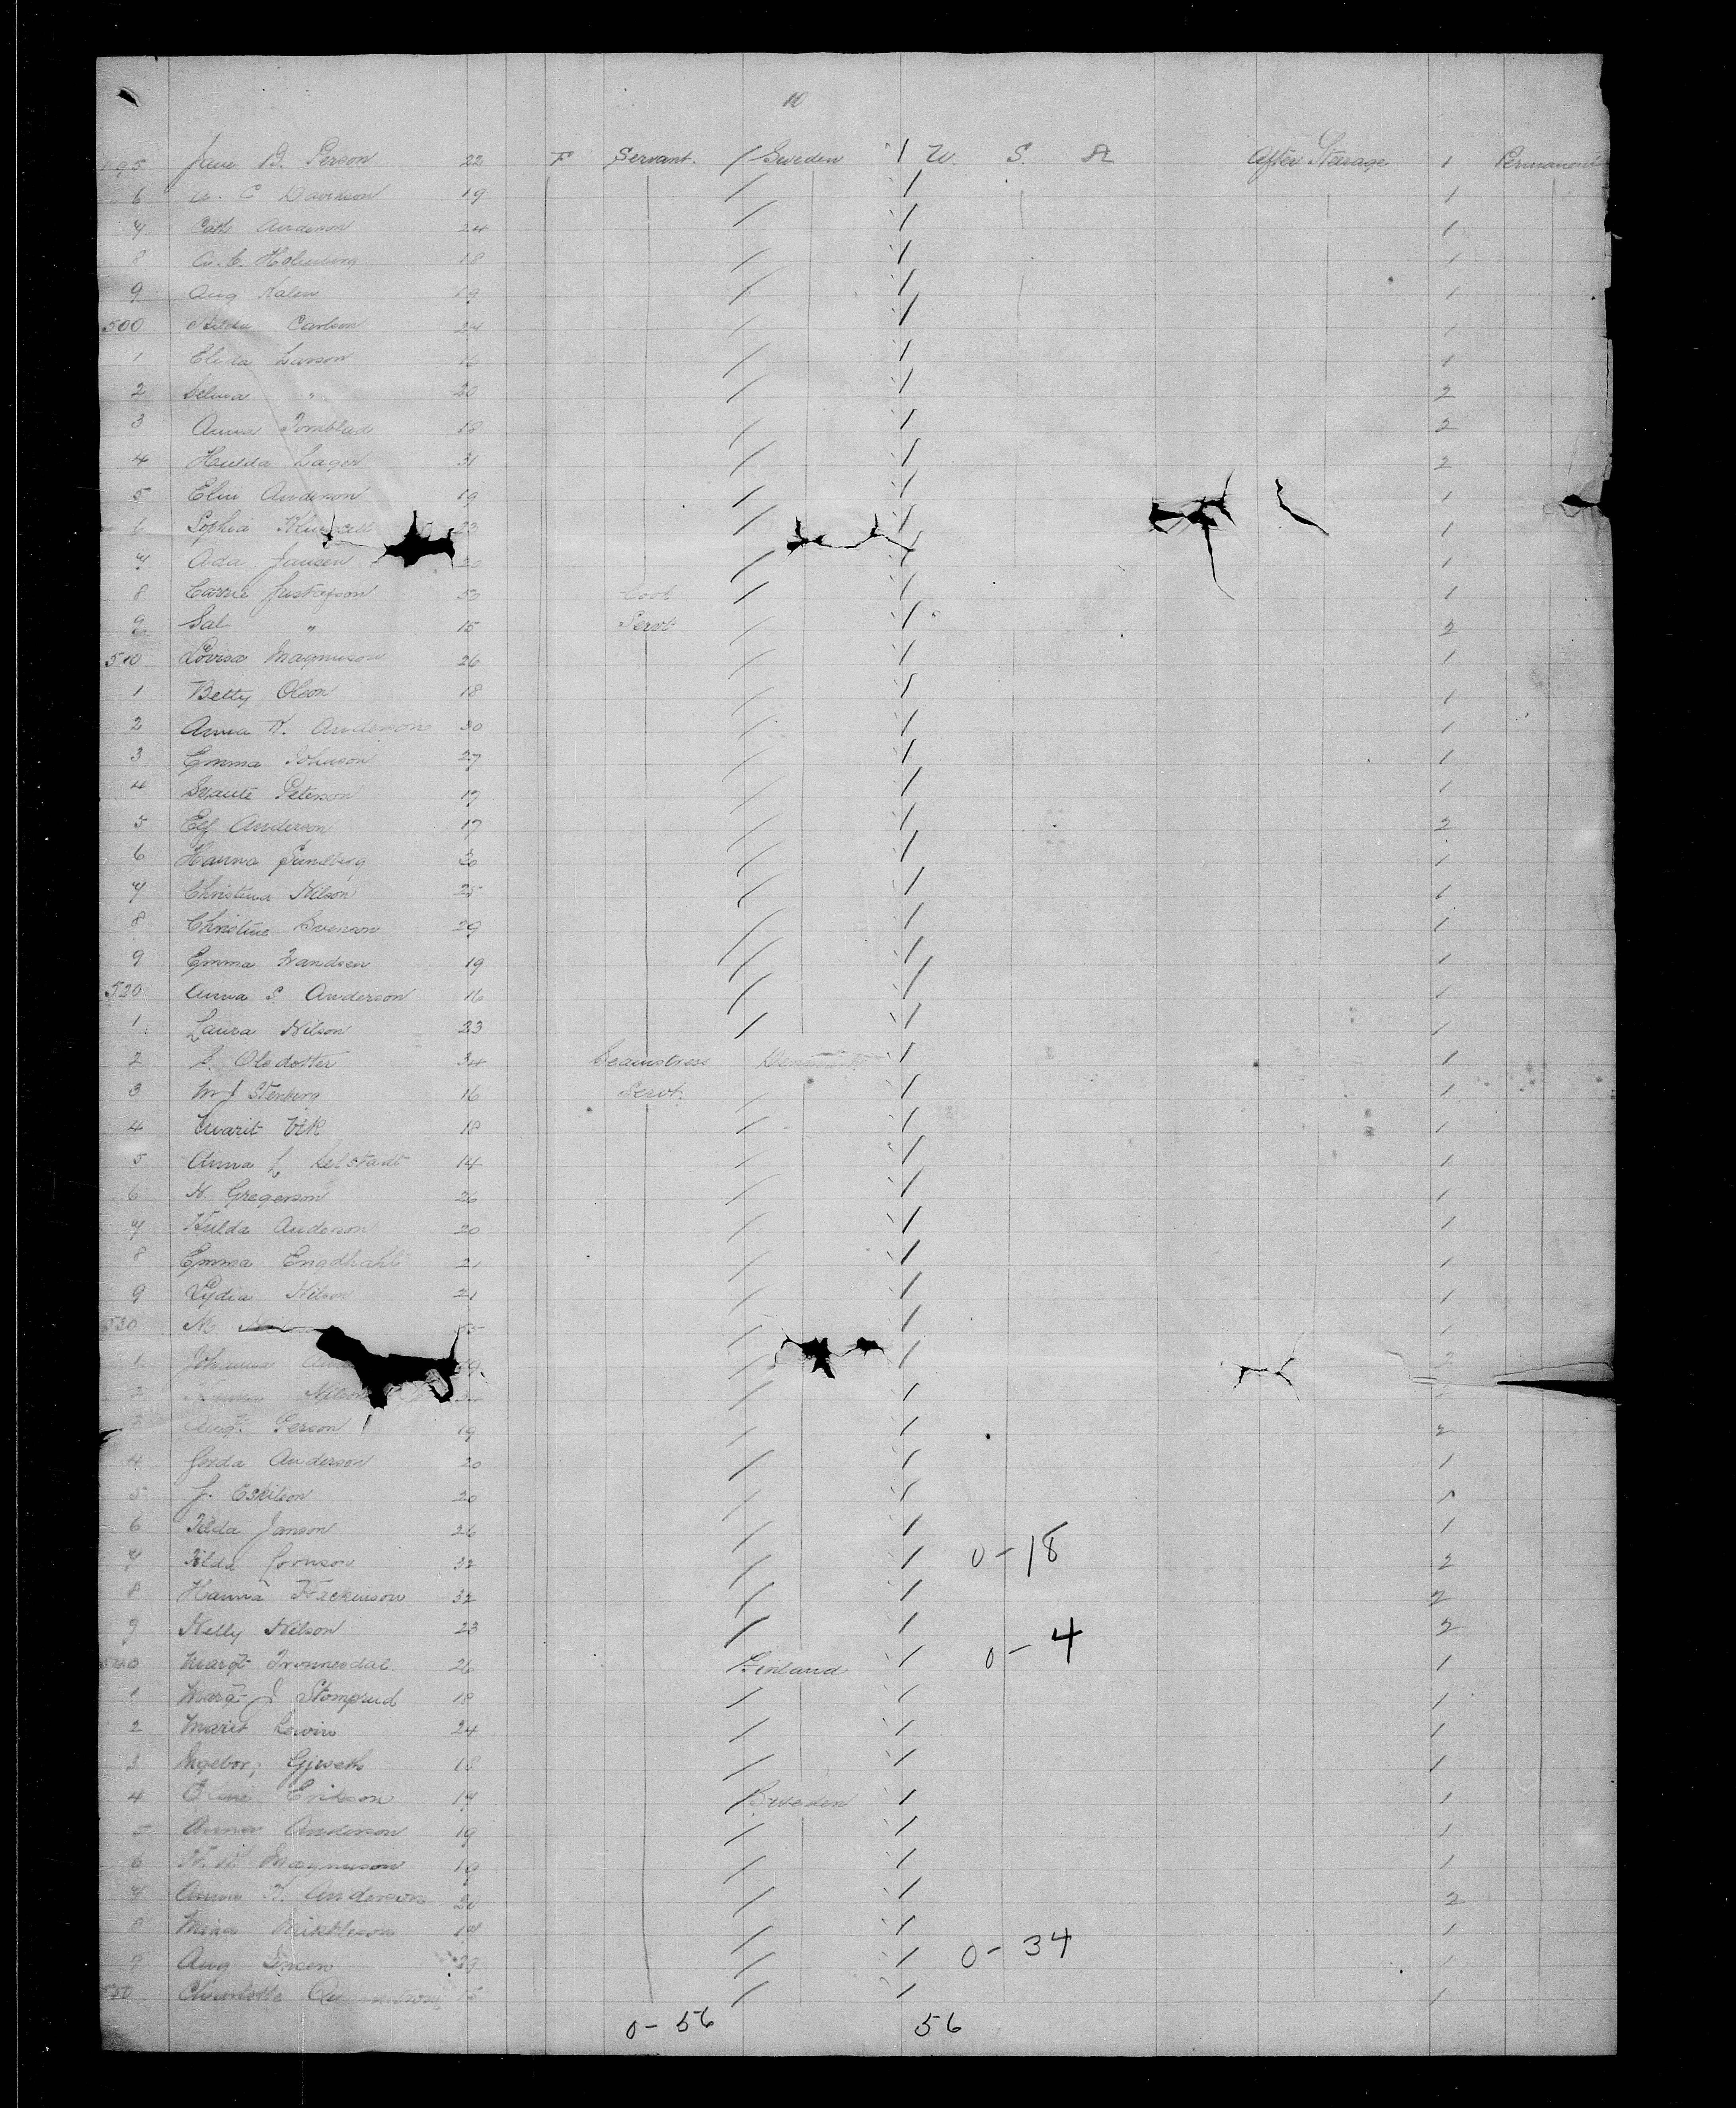 10
495 Jane B. Person 22 F Servant. / Sweden / U. S. A After Steerage 1 Permanent
6 A. C Davidson 19 / / 1
7 Cath Anderson 24 / / 1
8 A. C. Holmberg 18 / / 1
9 Aug Kalen 19 / / 1
500 Hilda Carlson 24 / / 1
1 Elida Larson 16 / / 1
2 Selma " 20 / / 2
3 Anna Tornblad 18 / / 2
4 Hulda Lager 31 / / 2
5 Elin Anderson 19 / / 1
6 Sophia 23 / / 1
7 Ada Jansen 20 / / 1
8 Carrie Gustafson 50 Cook / / 1
9 Sal " 15 Servt / / 2
510 Lovisa Magnuson 26 / / 1
1 Betty Olson 18 / / 1
2 Anna K. Anderson 30 / / 1
3 Emma Johnson 27 / / 1
4 Peterson 17 / / 1
5 Elf Anderson 17 / / 2
6 Hanna Sundberg 30 / / 1
7 Christina Nilson 25 / / 1
8 Christine Svenson 29 / / 1
9 Emma Frandsen 19 / / 1
520 Anna S. Anderson 16 / / 1
1 Laura Nilson 23 / / 1
2 S. Olsdotter 34 Seamstress Denmark / 1
3 M J Stenberg 16 Servt. / / 1
4 Marit Vik 18 / / 1
5 Anna L Selstadt 14 / / 1
6 N. Gregerson 26 / / 1
7 Hulda Anderson 20 / / 1
8 Emma Engdhahl 21 / / 1
9 Lydia Nilson 21 / / 1
530 M / / 1
1 Johanna 19 / / 2
2 Nilson / /
3 Augt. Person 19 / / 2
4 Gorda Anderson 20 / / 1
5 J. Eskilson 20 / / 1
6 Hilda Janson 26 / / 1
7 Hilda 32 / / 0-18 2
8 Hanna Hackinson 32 / / 2
9 Nelly Nilson 23 / / 2
540 Margt Tronnesdal 26 Finland / 0-4 1
1 Margt J Stomprud 18 / / 1
2 Marit Lowin 24 / / 1
3 Ingebor; Gjweth 18 / / 1
4 Oline Erikson 17 / Sweden / 1
5 Anna Anderson 19 / / 1
6 Magnuson 19 / / 1
7 Anna K. Anderson 20 / / 2
8 Mina Mikkleson 17 / / 1
9 Aug Jensen 23 / / 0-34 1
550 Charlotte / / 1
0-56 56